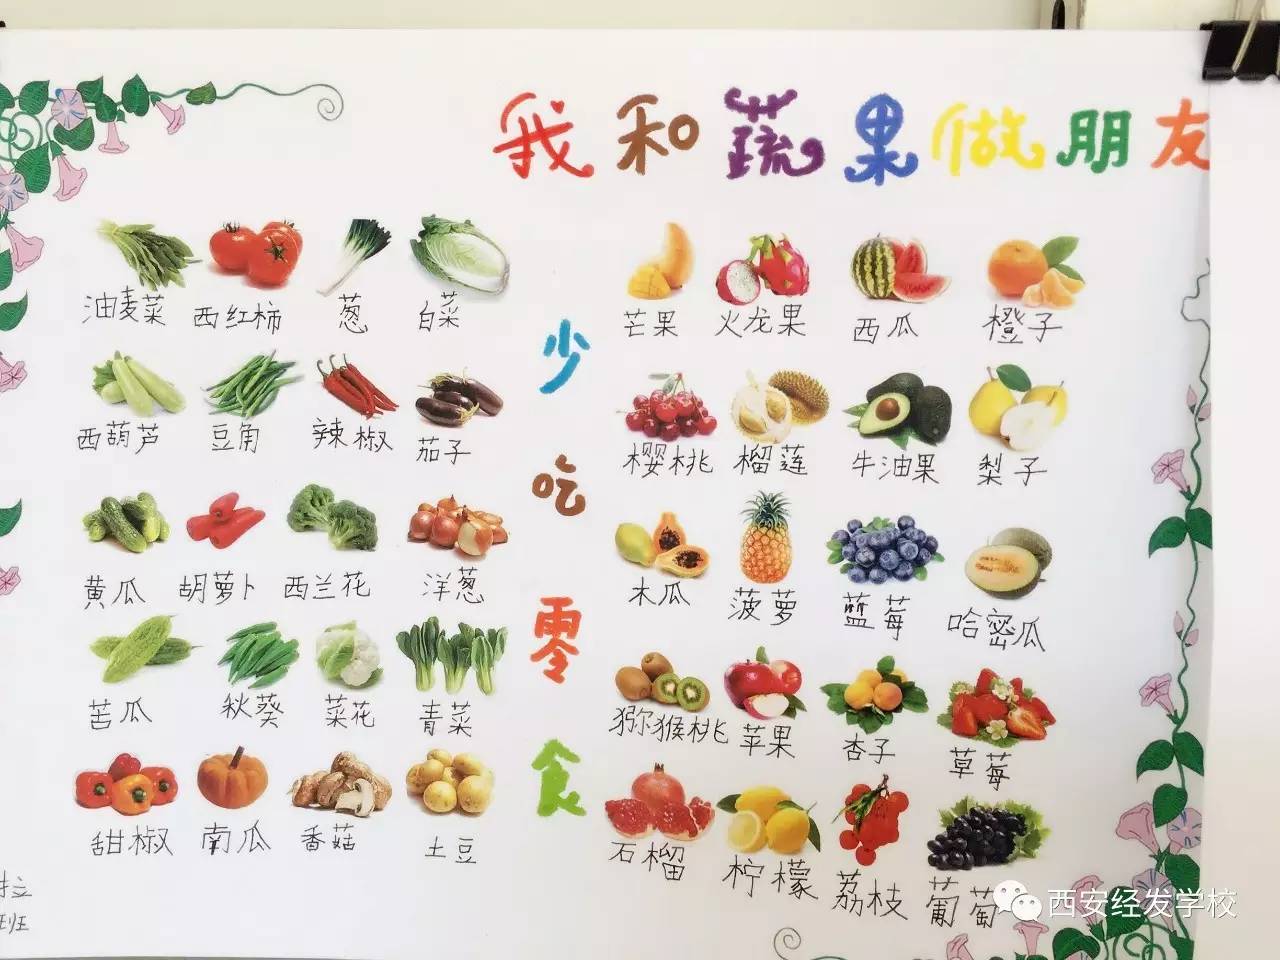 我和蔬果做朋友
少吃零食
油麦菜 西红柿 葱 白菜
西葫芦 豆角 辣椒 茄子
黄瓜 胡萝卜 西兰花 洋葱
苦瓜 秋葵 菜花 青菜
甜椒 南瓜 香菇 土豆
芒果 火龙果 西瓜 橙子
樱桃 榴莲 牛油果 梨子
木瓜 菠萝 蓝莓 哈密瓜
猕猴桃 苹果 杏子 草莓
石榴 柠檬 荔枝 葡萄
拉
班
西安经发学校